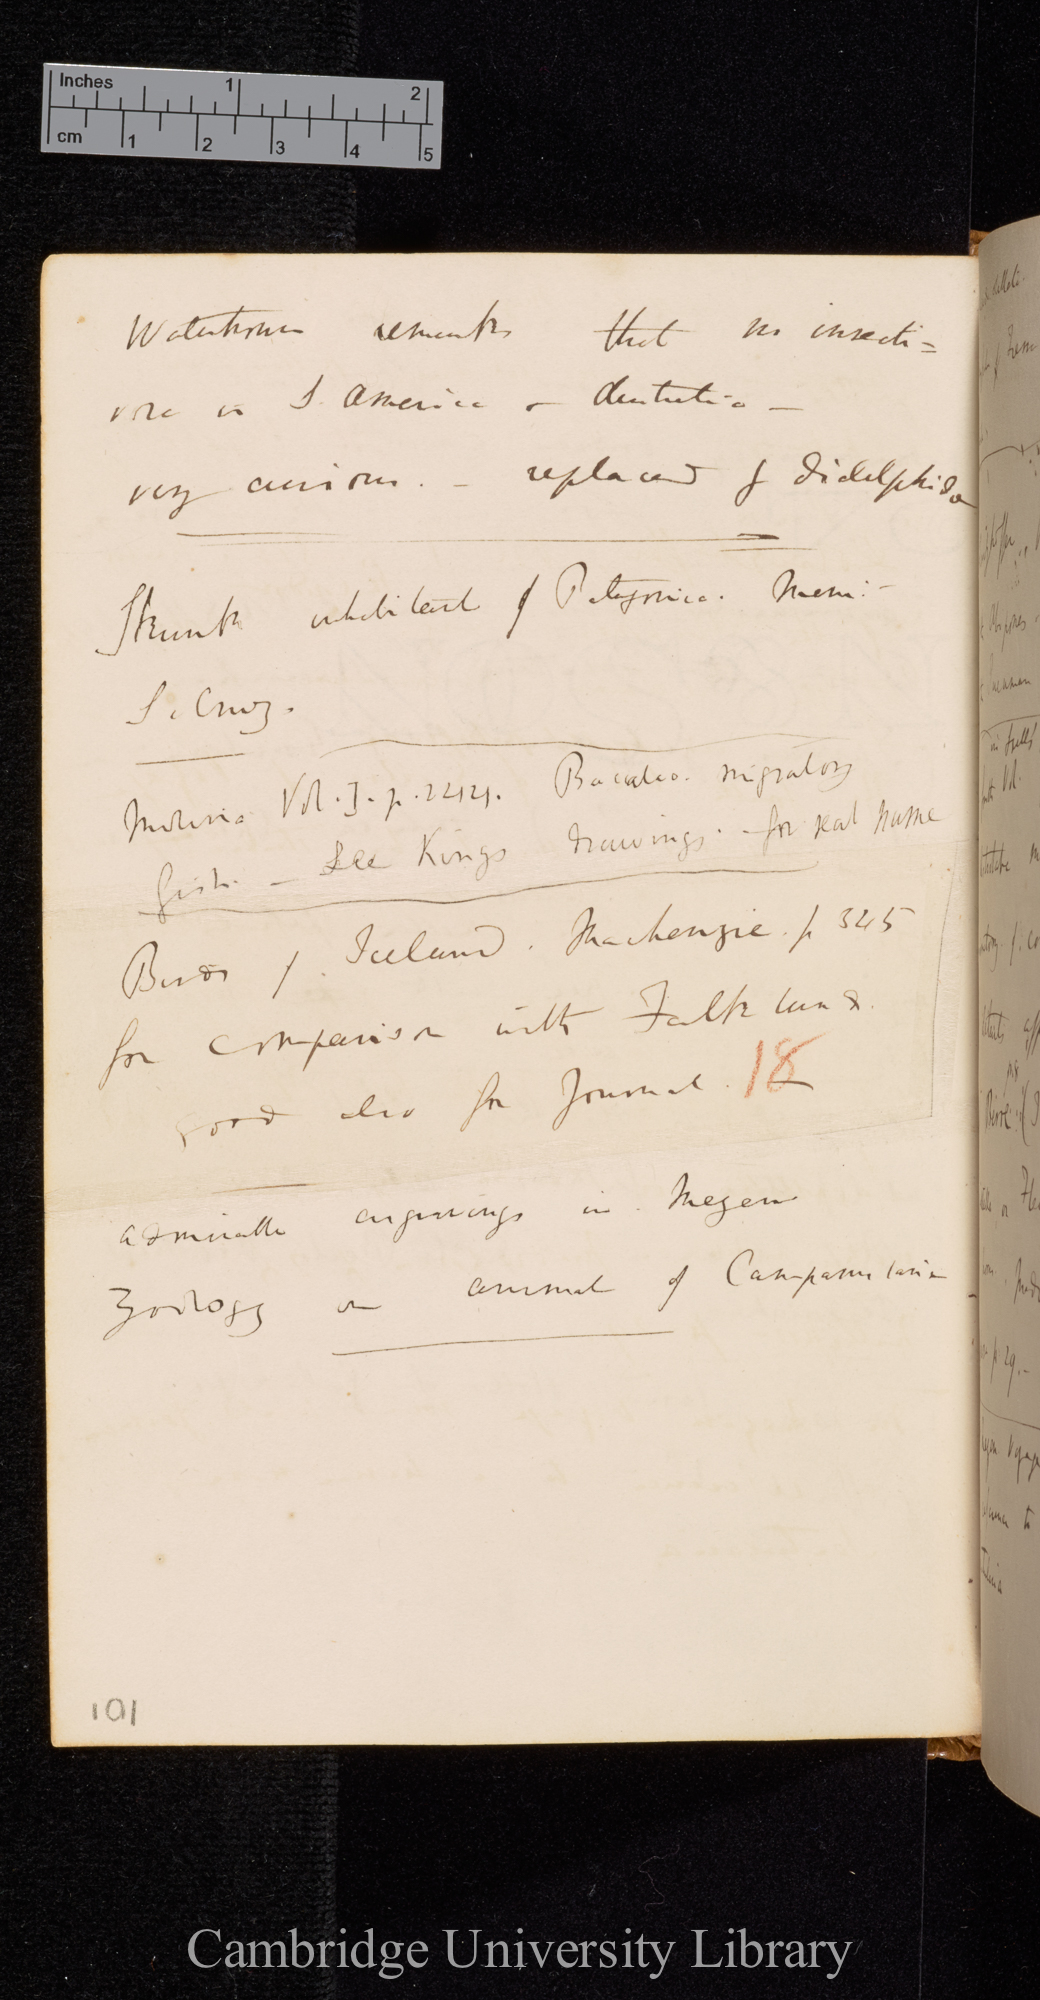 Inches 1 2
cm 1 2 3 4 5
Waterhouse remarks that no insecti=
vora in S. America or dentata —
very curious. — replaced by didelphidae
Skunk inhabitant of Patagonia. Mem: —
S. Cruz.
Molina Vol. I. p. 224. Bacalao. migratory
fish. — See Kings Drawings. — for real name
Birds of Iceland. Mackenzie. p 345
for comparison with Falkland.
good also for Journal. 18
admirable engravings in
Zoology on animal of Campanularia
101
Cambridge University Library